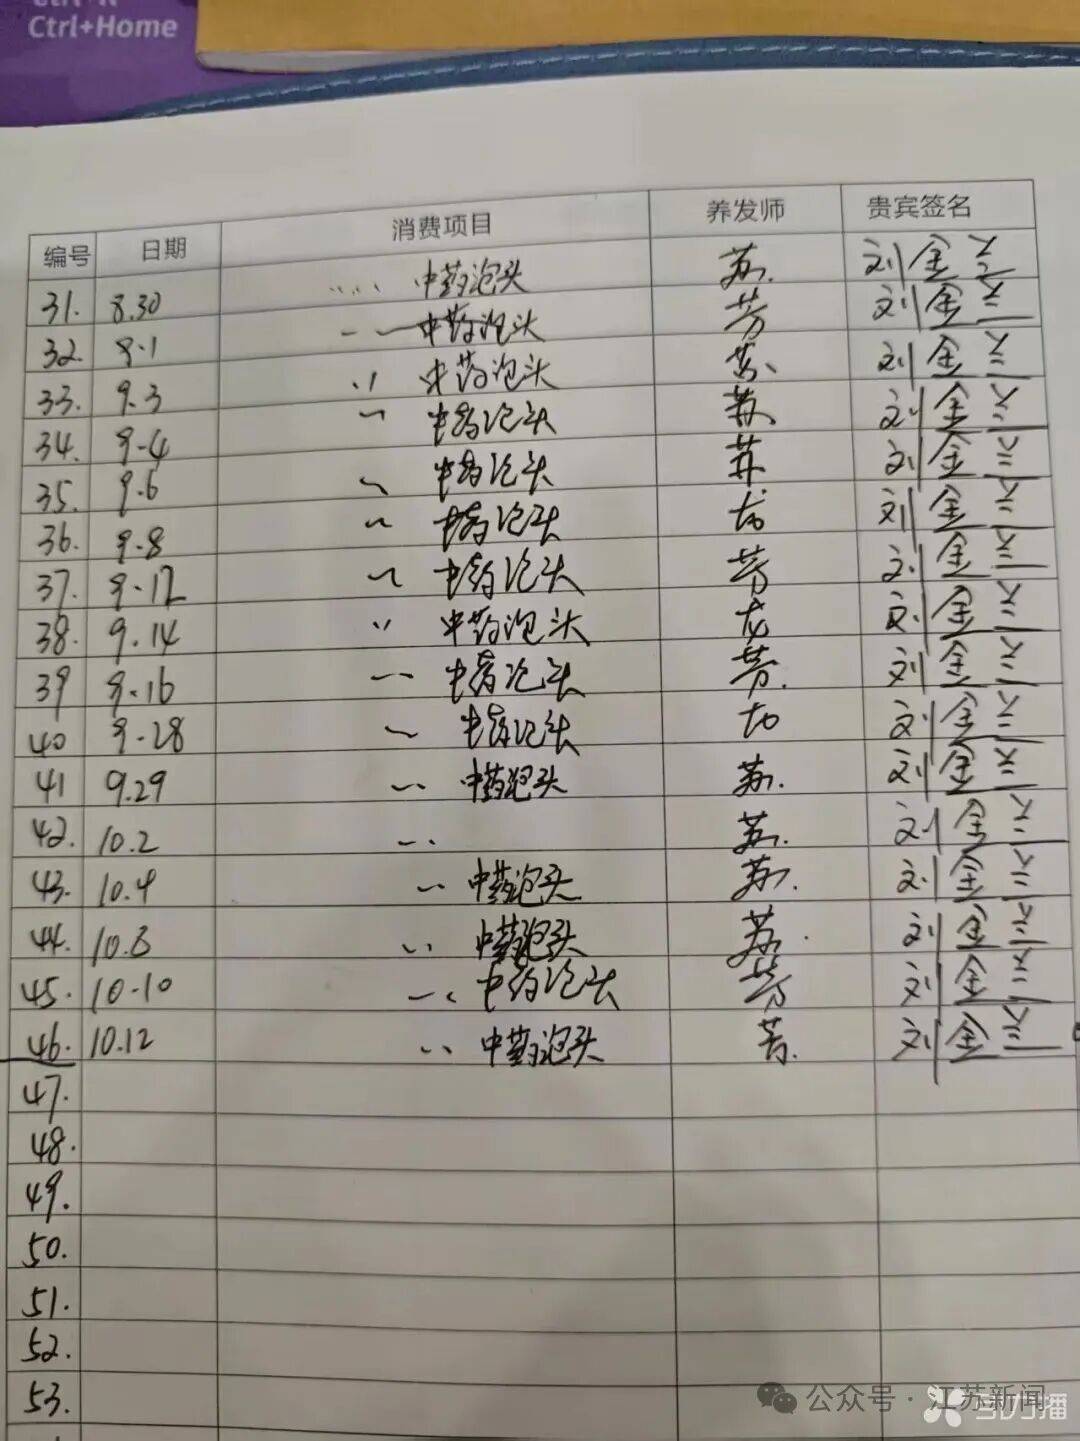 Ctrl+Home
编号 日期 消费项目 养发师 贵宾签名
31. 8.30 ..... 中药泡头 苏. 刘金兰
32. 9.1 -- 中药泡头 芳 刘金兰
33. 9.3 ·· 中药泡头 苏 刘金兰
34. 9-4 ~ 中药泡头 苏 刘金兰
35. 9.6 ~ 中药泡头 苏 刘金兰
36. 9-8 ~ 中药泡头 刘金兰
37. 9-12 ~ 中药泡头 芳 刘金兰
38. 9.14 ·· 中药泡头 龙 刘金兰
39 9.16 -- 中药泡头 芳. 刘金兰
40 9-28 ~ 中药泡头 刘金兰
41 9.29 ·· 中药泡头 苏. 刘金兰
42. 10.2 ·· 苏. 刘金兰
43. 10.4 ·· 中药泡头 苏. 刘金兰
44. 10.8 ·· 中药泡头 苏. 刘金兰
45. 10-10 -· 中药泡头 芳 刘金兰
46. 10.12 ·· 中药泡头 芳. 刘金兰
47.
48.
49.
50.
51.
52.
53.
公众号 · 江苏新闻